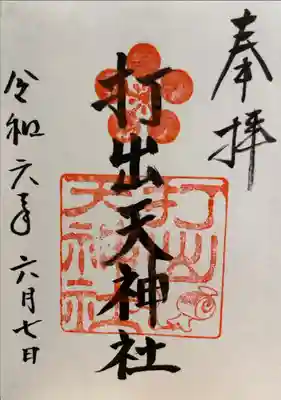 奉拝
打出天神社
打出天神社
令和六年六月七日